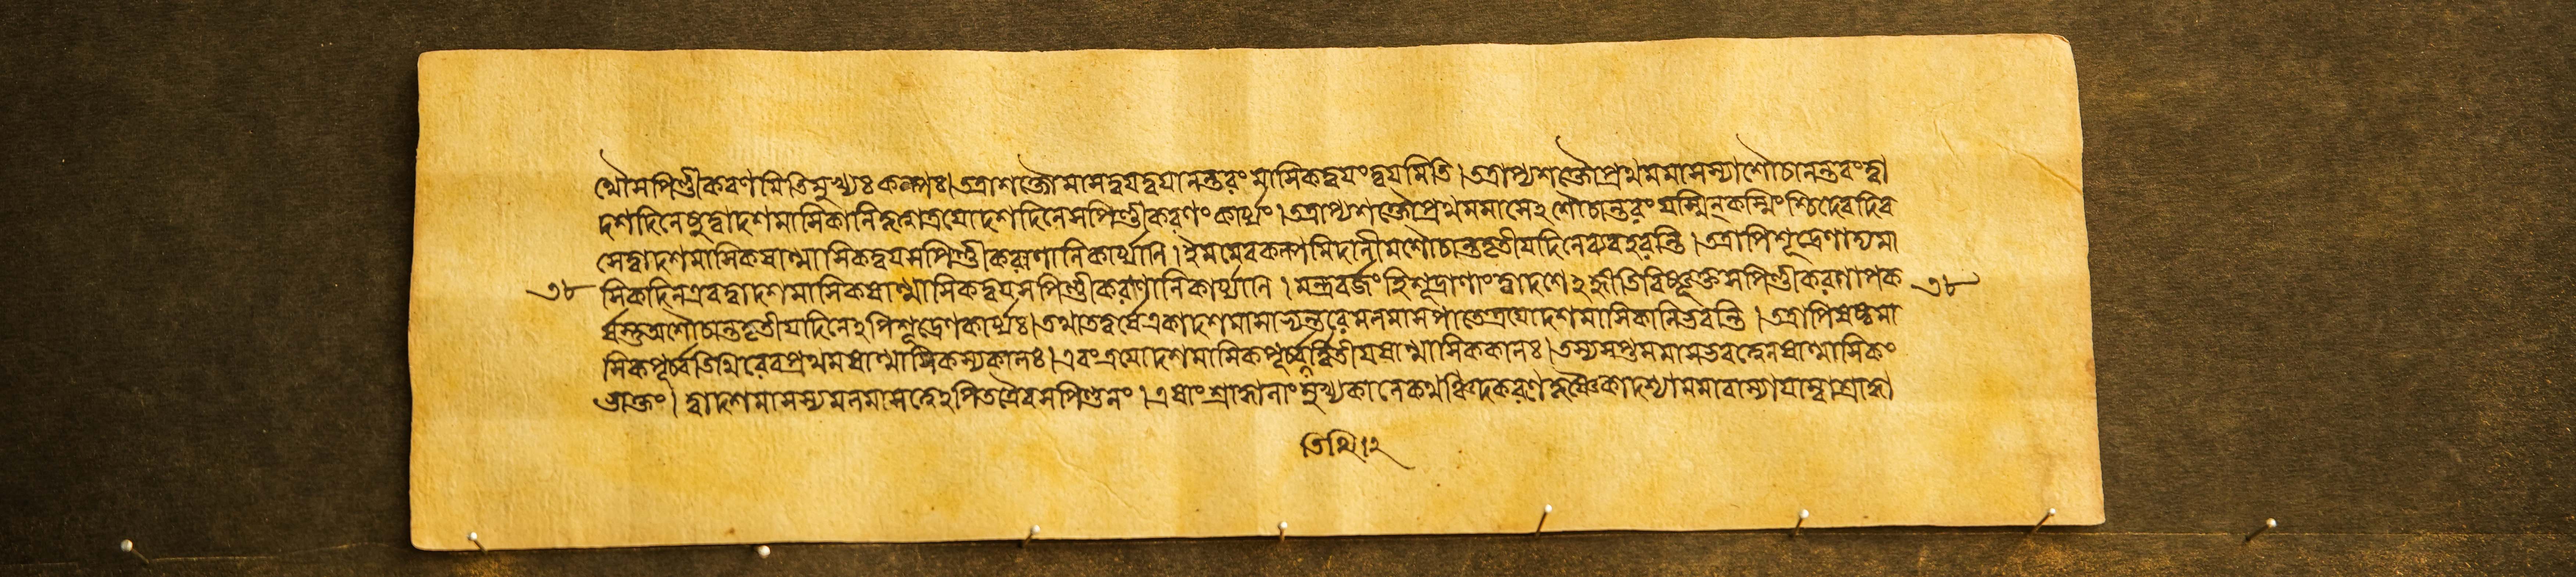 থৌসপিণ্ডীকরণমিতিমুখ্যঃ কল্পঃ। অত্রাশক্তৌমাসদ্বয়দ্বয়ানন্তরং মাসিকদ্বয়ংদ্বয়মিতি। অত্রাপ্যশক্তৌপ্রথমমাসস্যাশৌচানন্তরংদ্বা
দশদিনেষুদ্বাদশমাসিকানিকৃত্বাত্রয়োদশদিনেসপিণ্ডীকরণং কার্য্যং। অত্রাপ্যশক্তৌপ্রথমমাসেঽশৌচান্তরং যস্মিন্কস্মিংশ্চিদেবদিব
সেদ্বাদশমাসিকষাণ্মাসিকদ্বয়সপিণ্ডীকরণানিকার্য্যানি। ইমমেবকল্পমিদানীমশৌচান্তদ্বিতীয়দিনেব্যবহরন্তি। অত্রাপিশূদ্রেণাদ্যমা
৩৮ সিকদিনএবদ্বাদশমাসিকষাণ্মাসিকদ্বয়সপিণ্ডীকরণানিকার্য্যানি। মন্ত্রবর্জং হিশূদ্রাণাং দ্বাদশেঽহ্নীতিবিষ্ণূক্তসপিণ্ডীকরণাপক ৩৮
র্ষস্তুঅশৌচান্তদ্বিতীয়দিনেঽপিশূদ্রেণকার্য্যঃ। তথাতদ্বর্ষেএকাদশমাসাভ্যন্তরেমলমাসপাতেত্রয়োদশমাসিকানিভবন্তি। অত্রাপিষষ্ঠমা
সিকপূর্ব্বতিথিরেবপ্রথমষাণ্মাসিকস্যকালঃ। এবংত্রয়োদশমাসিকপূর্ব্বতিথির্দ্বিতীয়ষাণ্মাসিককালঃ। তস্যসপ্তমমাসভবত্বেনষাণ্মাসিকং
প্রাক্তং। দ্বাদশমাসস্যমলমাসত্বেঽপিতত্রৈবসপিণ্ডনং। এষাং শ্রাদ্ধানাং মুখ্যকালেকথঞ্চিদকরণেকৃষ্ণৈকাদশ্যামমাবাস্যায়াম্বাশ্রাদ্ধা
তিথি।২